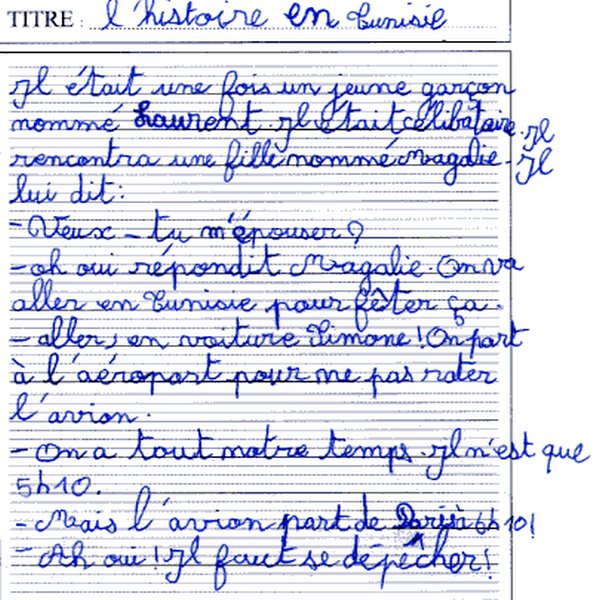 TITRE : l'histoire en Tunisie
Il était une fois un jeune garçon
nommé Laurent. Il était célibataire. Il
rencontra une fille nommé Magalie. Il
lui dit :
- Veux-tu m'épouser ?
- oh oui répondit Magalie. On va
aller en Tunisie pour fêter ça.
- aller, en voiture Simone ! On part
à l'aéroport pour ne pas rater
l'avion.
- On a tout notre temps. Il n'est que
5h10.
- Mais l'avion part de Paris à 6h10!
- Ah oui ! Il faut se dépêcher !